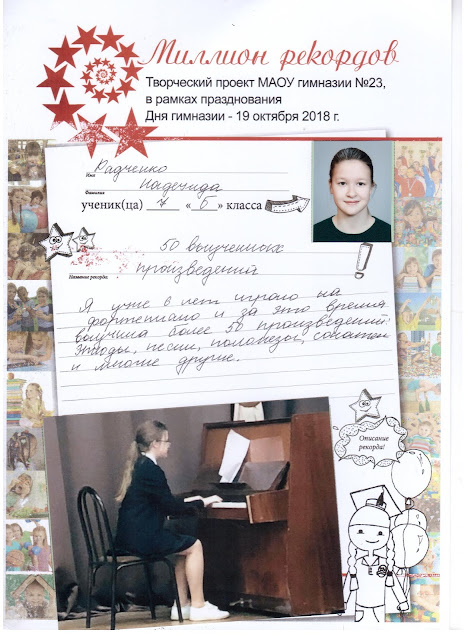 Миллион рекордов
Творческий проект МАОУ гимназии №23,
в рамках празднования
Дня гимназии - 19 октября 2018 г.
Радченко
Имя
Надежда
Фамилия
ученик(ца) 7 « Б » класса
50 выученных
Название рекорда
произведений
Я уже 6 лет играю на
фортепиано и за это время
выучила более 50 произведений:
этюды, песни, полонезы, сонатины
и многие другие.
Описание
рекорда!